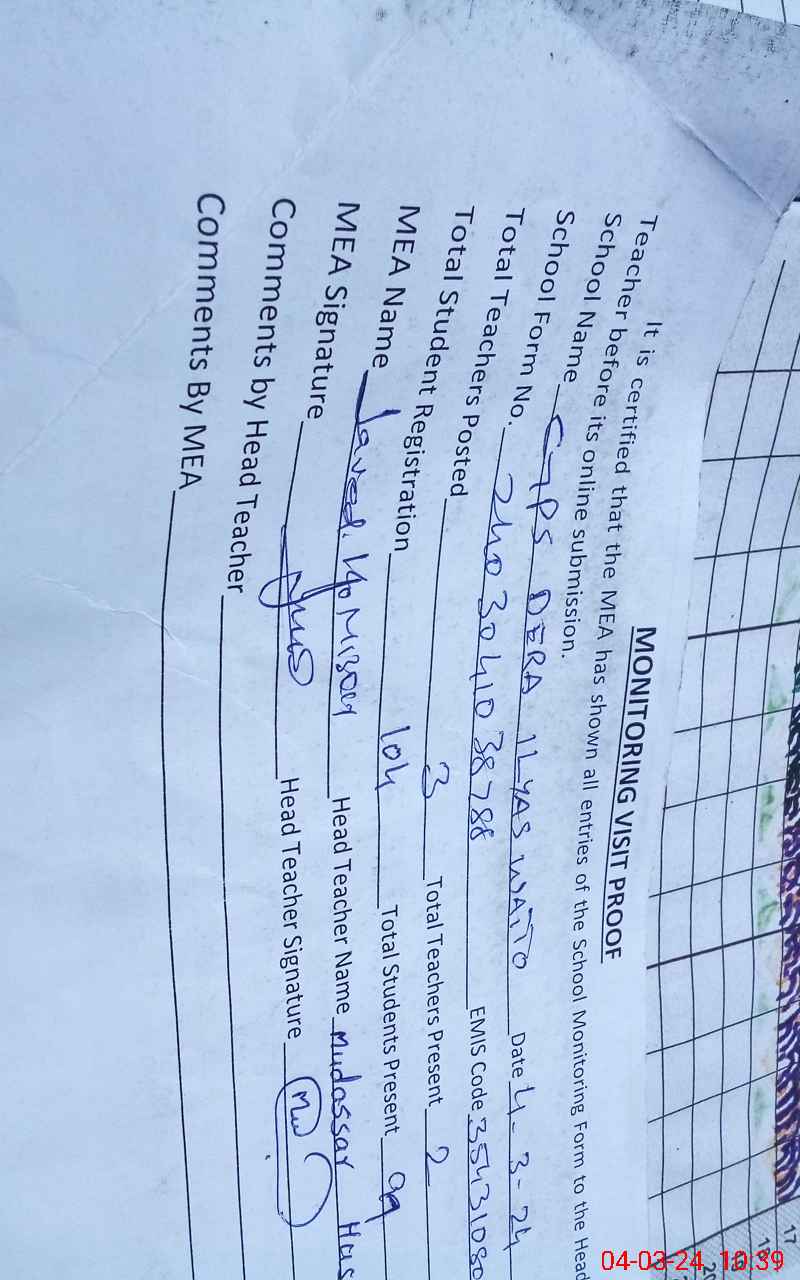 MONITORING VISIT PROOF
It is certified that the MEA has shown all entries of the School Monitoring Form to the Head
Teacher before its online submission.
School Name GPS DERA ILYAS WATTO Date 4-3-24
School Form No. 2403041038788 EMIS Code 35431080
Total Teachers Posted 3 Total Teachers Present 2
Total Student Registration 104 Total Students Present 99
MEA Name Javed Head Teacher Name Mudassar Has
MEA Signature Head Teacher Signature
Comments by Head Teacher
Comments By MEA
17
04-03-24 10:39